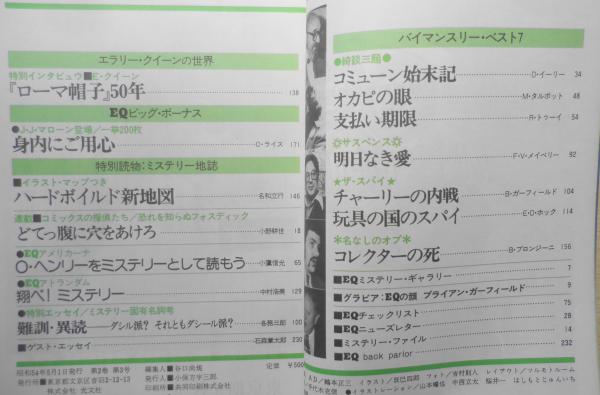 バイマンスリー・ベスト7
●綺談三題●
コミューン始末記 D・イーリー 34
オカピの眼 M・タルボット 48
支払い期限 R・トゥーイ 54
✡サスペンス✡
明日なき愛 F・V・メイベリー 92
★ザ・スパイ★
チャーリーの内戦 B・ガーフィールド 104
玩具の国のスパイ E・D・ホック 114
＊名なしのオプ＊
コレクターの死 B・プロンジーニ 156
■EQミステリー・ギャラリー 7
■グラビア：EQの顔 ブライアン・ガーフィールド 9
■EQチェックリスト 75
■EQニューズレター 28
■ミステリー・ファイル 14
■EQ back parlor 232
AD／鶴本正三 イラスト／辰巳四郎 フォト／吉村則人 レイアウト／ツルモトルーム
●イラストレーション／山本耀也 中西立太 桜井一 はしもとじゅんいち
エラリー・クイーンの世界
特別インタビュウ■E・クイーン
『ローマ帽子』50年 138
EQビッグ・ボーナス
●J・J・マローン登場／一挙200枚
身内にご用心 C・ライス 171
特別読物：ミステリー地誌
■イラスト・マップつき
ハードボイルド新地図 名和立行 146
連載■コミックスの探偵たち／恐れを知らぬフォスディック
どてっ腹に穴をあけろ 小野耕世 18
●EQアメリカーナ
O・ヘンリーをミステリーとして読もう 小鷹信光 65
●EQアトランダム
翔べ！ミステリー 中村浩美 129
●特別エッセイ／ミステリー固有名詞考
難訓・異読――ダシル派？ それともダシール派？ 各務三郎 100
■ゲスト・エッセイ 石森章太郎 230
昭和54年5月1日発行 第2巻 第3号 編集人■谷口尚規 定価 ￥500
発行所■東京都文京区音羽2-12-13 発行人■小保方宇三郎
株式会社 光文社 印刷所■共同印刷株式会社